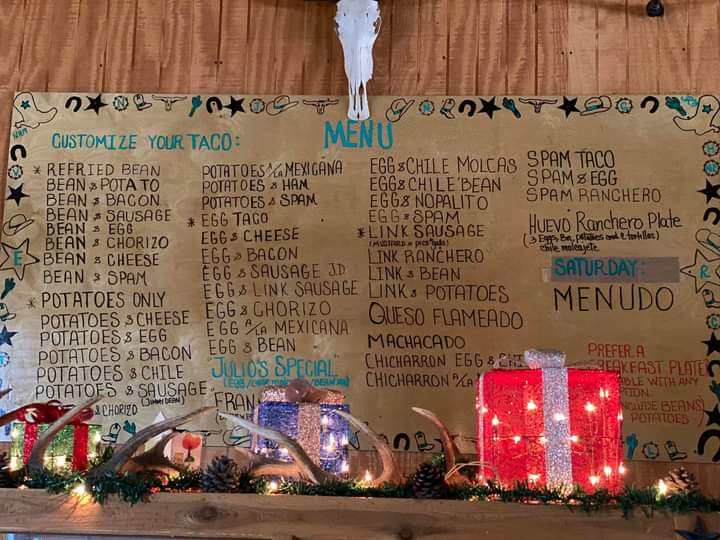 MENU
CUSTOMIZE YOUR TACO:
* REFRIED BEAN
BEAN & POTATO
BEAN & BACON
BEAN & SAUSAGE
BEAN & EGG
BEAN & CHORIZO
BEAN & CHEESE
BEAN & SPAM
* POTATOES ONLY
POTATOES & CHEESE
POTATOES & EGG
POTATOES & BACON
POTATOES & CHILE
POTATOES & SAUSAGE
(JIMMY DEAN)
& CHORIZO
POTATOES a'la MEXICANA
POTATOES & HAM
POTATOES & SPAM
* EGG TACO
EGG & CHEESE
EGG & BACON
EGG & SAUSAGE J.D
EGG & LINK SAUSAGE
EGG & CHORIZO
EGG a'la MEXICANA
EGG & BEAN
"JULIO'S SPECIAL"
FRAN
EGG & CHILE MOLCAS
EGG & CHILE BEAN
EGG & NOPALITO
EGG & SPAM
* LINK SAUSAGE
LINK RANCHERO
LINK & BEAN
LINK & POTATOES
QUESO FLAMEADO
MACHACADO
CHICHARRON EGG & CHI
CHICHARRON a'la
SPAM TACO
SPAM & EGG
SPAM RANCHERO
HUEVO RANCHERO PLATE
chile molcajete
SATURDAY:
MENUDO
PREFER A
BREAKFAST PLATE
WITH ANY
BEANS
POTATOES
E
R